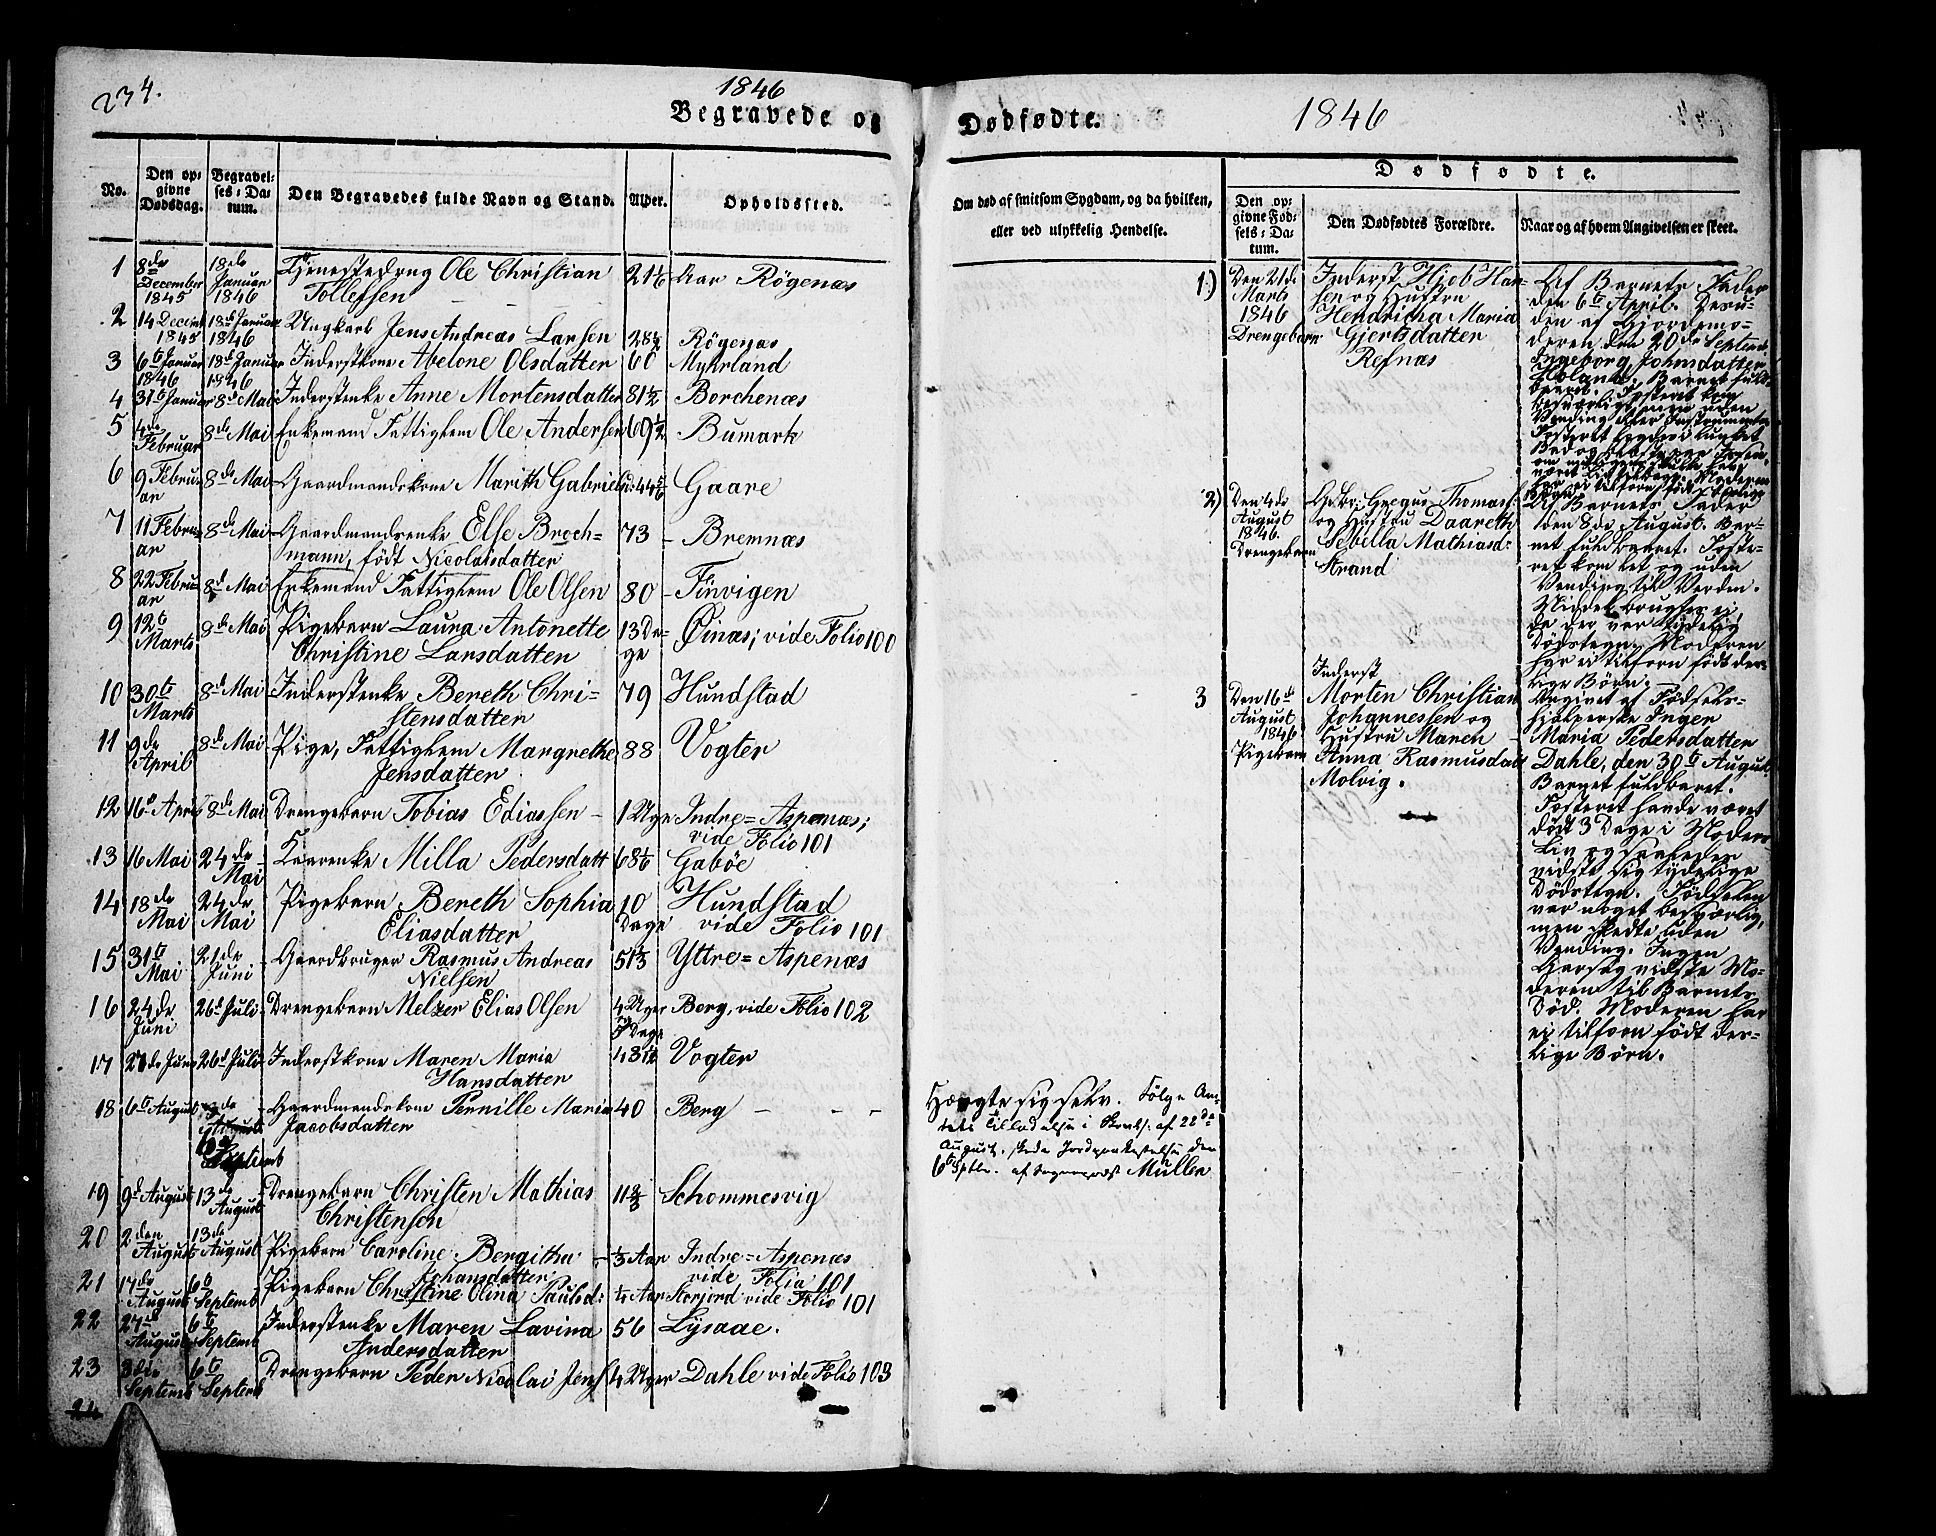 234.
1846
Begravede og
No.
Den op-
givne
Dødsdag.
Begravel-
ses-Da-
tum.
Den Begravedes fulde Navn og Stand.
Alder.
Opholdssted.
1 8de December 1845 18de Januar 1846 Tjenestedreng Ole Christian Tollefsen 21 1/6 Aar Rögenæs
2 14 Decemb 1845 18de Januar 1846 Ungkarl Jens Andreas Larsen 28 1/2 Rögenæs
3 6te Januar 1846 18de Januar 1846 Inderstkone Abelone Olsdatter 60 Myhrland
4 31te Januar 8de Mai Inderstenke Anne Mortensdatter 81 1/2 Borchenæs
5 4de Februar 8de Mai Enkemand Fattiglem Ole Andersen 69 1/2 Bumark
6 9 Februar 8de Mai Gaardmandskone Marith Gabrielsd: 44 5/6 Gaare
7 11 Februar 8de Mai Gaardmandsenke Else Broch-
mann, født Nicolaisdatter 73 Bremnæs
8 22 Februar 8de Mai Enkemand Fattiglem Ole Olsen 80 Finvigen
9 12te Marts 8de Mai Pigebarn Laura Antonette
Christine Larsdatter 13 Dage Öinæs; vide Folio 100
10 30te Marts 8de Mai Inderstenke Bereth Chri-
stensdatter 79 Hundstad
11 9de April 8de Mai Pige, Fattiglem Margrethe
Jensdatter 88 Vogter
12 16de April 8de Mai Drengebarn Tobias Ediassen 1 Uge Indre=Aspenæs;
vide Folio 101
13 16 Mai 24de Mai Kaarenke Milla Pedersdatt 68 1/6 Gaböe
14 18de Mai 24de Mai Pigebarn Bereth Sophia
Eliasdatter 10 Dage Hundstad
vide Folio 101
15 31te Mai 21de Juni Gaardbruger Rasmus Andreas
Nielsen 51 Yttre=Aspenæs
16 24de Juni 26de Juli Drengebarn Melzer Elias Olsen 4 Uger Dage Berg, vide Folio 102
17 Juni 26de Juli Inderstkone Maren Maria
Hansdatter 43 Vogter
18 6te August August
6te Septemb Gaardmandskone Pernille Maria
Jacobsdatter 40 Berg
19 9de August 13de August Drengebarn Christen Mathias
Christensen 11 Schommesvig
20 2den August 13de August Pigebarn Caroline Bergitha
Johansdatter 1/3 Aar Indre=Aspenæs
vide Folio 101
21 17de August 6te Septemb Pigebarn Christine Olina Paulsd: Aar Storjord vide Folio 101
22 27de August 6te Septemb Inderstenke Maren Lavina
Andersdatter 56 Lysaae.
23 3die Septemb 6te Septemb Drengebarn Peder Nicolai Jens 4 Uger Dahle vide Folio 103
24
Dødfødte.
1846
Om død af smitsom Sygdom, og da hvilken,
eller ved ulykkelig Hendelse.
Dødfødte.
Den op-
givne Fød-
sels-Da-
tum.
Den Dødfødtes Forældre.
Naar og af hvem Angivelsen er skeet.
1.)
Den 21de
Marts
1846
Drengebarn
Inderst Hjob Han-
sen og Hustru
Hendricha Maria
Gjertsdatter
Refnæs
Af Barnets Fader
den 6te April. Desu-
den af Gjordemo-
deren den 20de Septemb
Ingeborg Johnsdatter
Holand. Barnet fuld-
baaret. Fosteret kom
besværligt men uden
Vending eller Instrumenter
2)
Den 4de
August
1846.
Drengebarn
Gbr: Gregus Thomas:
og Hustru Daareth
Sebilla Mathiasd:
Strand
Af Barnets Fader
den 8de August. Bar-
net fuldbaaret. Foste-
ret kom let og uden
Vending til Verden.
Middel brugtes ei,
da der var tydelig
Dödstegn. Moderen
har ei tilforn födt der-
lige Börn.
3
Den 16de
August
1846
Pigebarn
Inderst
Morten Christian
Johannessen og
Hustru Maren
Anna Rasmusdatt
Molvig.
Angivet af Födsels-
hjelperske Inger
Maria Pedersdatter
Dahle, den 30te August.
Barnet fuldbaret.
Fosteret havde været
dödt 3 Dage i Moders
Liv og saaledes
vidste sig tydelige
Dödstegn. Födselen
var noget besværlig,
men skedte uden
Vending. Ingen
Aarsag vidste Mo-
deren til Barnets
Död. Moderen har
ei tilforn födt der-
lige Börn.
Hængte sig selv. Fölge Am-
tets Tilladelse i Skrivl: af 22de
August, skede Jordpaakastelse den
6te Septbr. af Sognepræst Müller